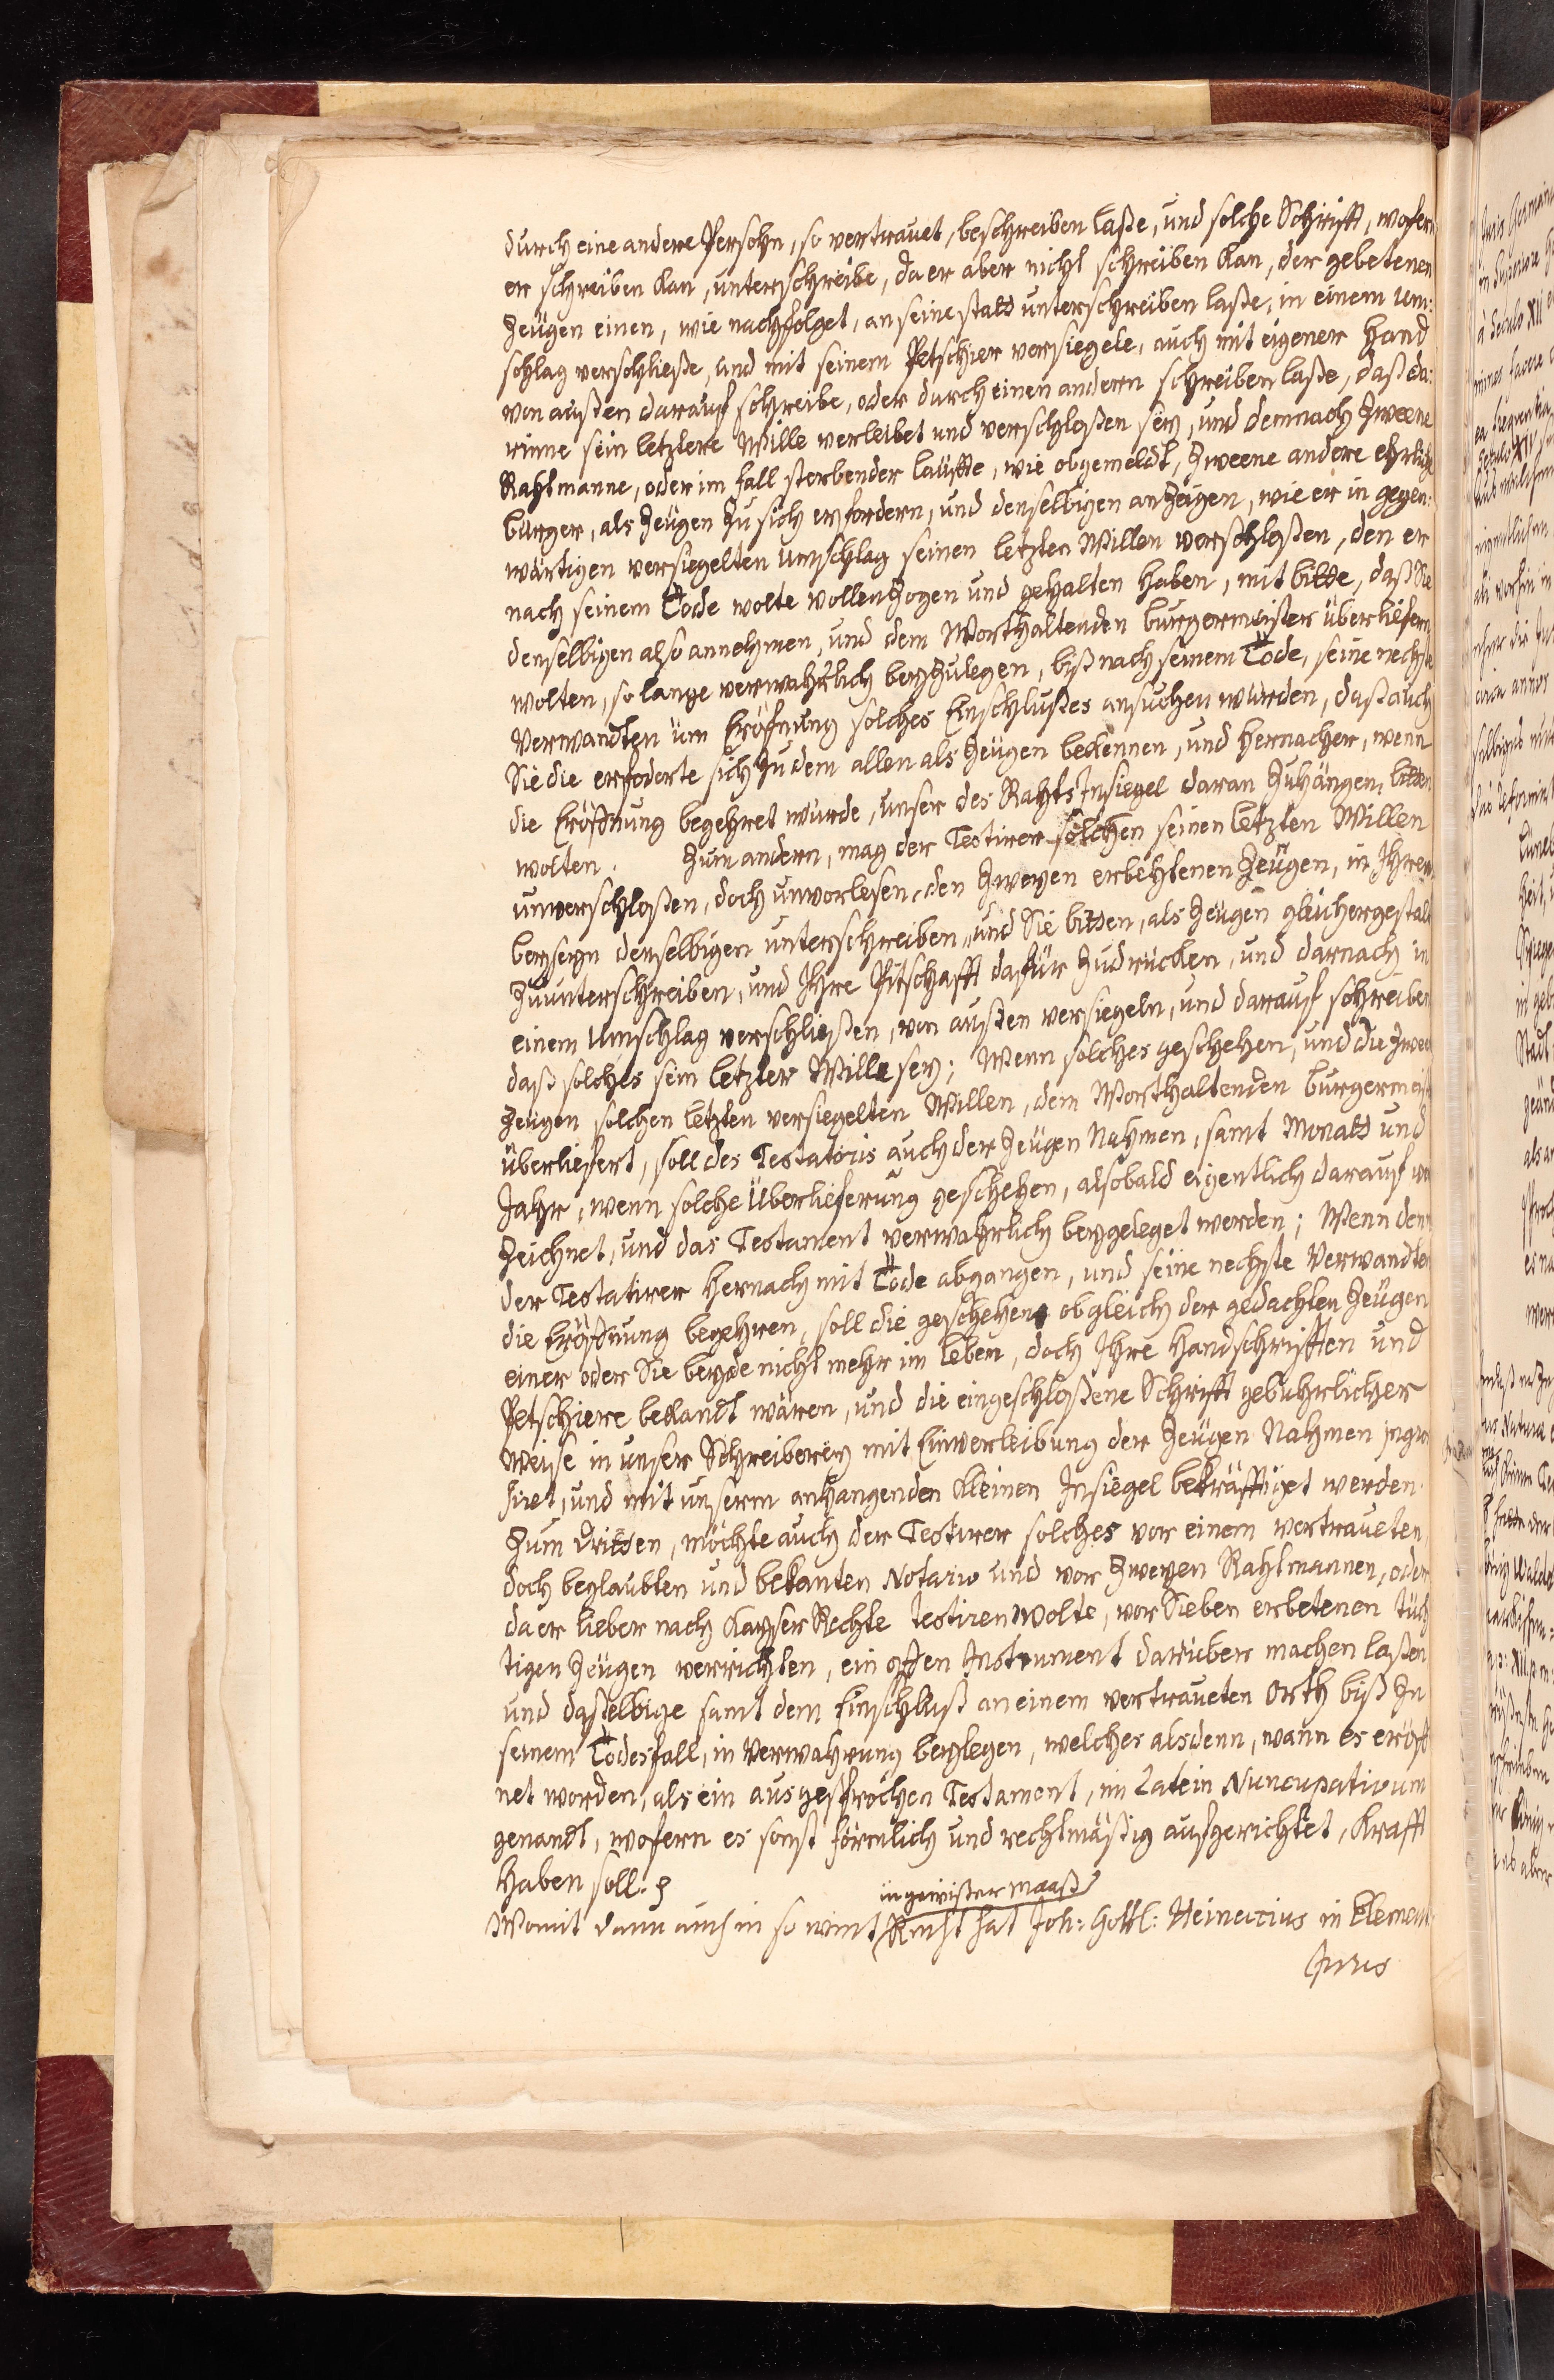 durch eine andere Persohn, so vertrauet, beschreiben laße, und solche Schrifft, wofern
er schreiben kan, unterschreibe, da er aber nicht schreiben kan, der gebetenen
Zeügen einen, wie nachfolget, an seine statt unterschreiben laße, in einem Um:
schlag verschließe, und mit seinem Petschier versiegele, auch mit eigener Hand
von außen darauf schreibe, oder durch einen andern schreiben laße, daß da:
rinne sein letzter Wille verleibet und verschloßen sey, und demnach Zweene
Rahtmanne, oder im fall sterbender läuffte, wie obgemeldt, Zweene andere ehrliche
bürger, als Zeügen Zu sich erfordern, und denselbigen anzeigen, wie er in gegen:
wärtigen versiegelten umschlag seinen letzten Willen verschloßen, den er
nach seinem Tode wolte vollenzogen und gehalten haben, mit bitte, daß Sie
denselbigen also annehmen, und dem Worthaltenden bürgermeister überliefern
wolten, so lange verwahrlich beyzulegen, biß nach seinem Tode, seine nechste
Verwandten üm Eröfnung solches Einschlußes ansuchen würden, daß auch
Sie die erfoderte sich Zu dem allen als Zeügen bekennen, und hernacher, wenn
die Eröffnung begehret würde, unser des Rahts Insiegel daran Zuhängen, bitten
wolten. Zum andern, mag der Testirer solchen seinen letzten Willen
unverschloßen, doch unverlesen, den Zweyen erbehtenen Zeügen, in Ihrem
beyseyn denselbigen unterschreiben, und Sie bitten, als Zeügen gleichergestalt
Zuunterschreiben, und Ihre Pitschafft dafür Zudrücken, und darnach in
einem Umschlag verschließen, von außen versiegeln, und darauf schreiben
daß solches sein letzter Wille sey; Wenn solches geschehen, und die Zween
Zeügen solchen letzten versiegelten Willen, dem Worthaltenden bürgermeist
überliefert, soll des Testatoris auch der Zeügen Nahmen, samt Monatt und
Jahr, wenn solche Überlieferung geschehen, alsobald eigentlich darauf ver
Zeichnet, und das Testament verwahrlich beygeleget werden; Wenn denn
der Testatirer hernach mit Tode abgangen, und seine nechste Verwandten
die Eröffnung begehren, soll die geschehen, obgleich der gedachten Zeügen
einer oder Sie beyde nicht mehr im leben, doch Ihre Handschrifften und
Petschiere bekandt wären, und die eingeschloßene Schrifft gebührlicher
Weise in unser Schreiberey mit Einverleibung der Zeügen Nahmen ingros
siret, und mit unserm anhangenden kleinen Insiegel bekräfftiget werden.
Zum dritten, möchte auch der Testirer solches vor einem vertraueten,
doch beglaubten und bekanten Notario und vor Zweyen Rahtmannen, oder
da er lieber nach Kayser Rechte testiren wolte, vor Sieben erbetenen tüch
tigen Zeügen verrichten, ein offen Instrument darüber machen laßen
und daßelbige samt dem Einschluß an einem vertraueten Orth biß Zu
seinem Todesfall, in Verwahrung beylegen, welches alsdenn, wann es eröff
net worden, als ein ausgesprochen Testament, im Latein Nuncupativum
genandt, wofern es sonst förmlich und rechtmäßig aufgerichtet, Krafft
haben soll.
in gewißer maaß
Womit dann auch in so weit Recht hat Joh: Gottl: Heineccius in Element:
Juris